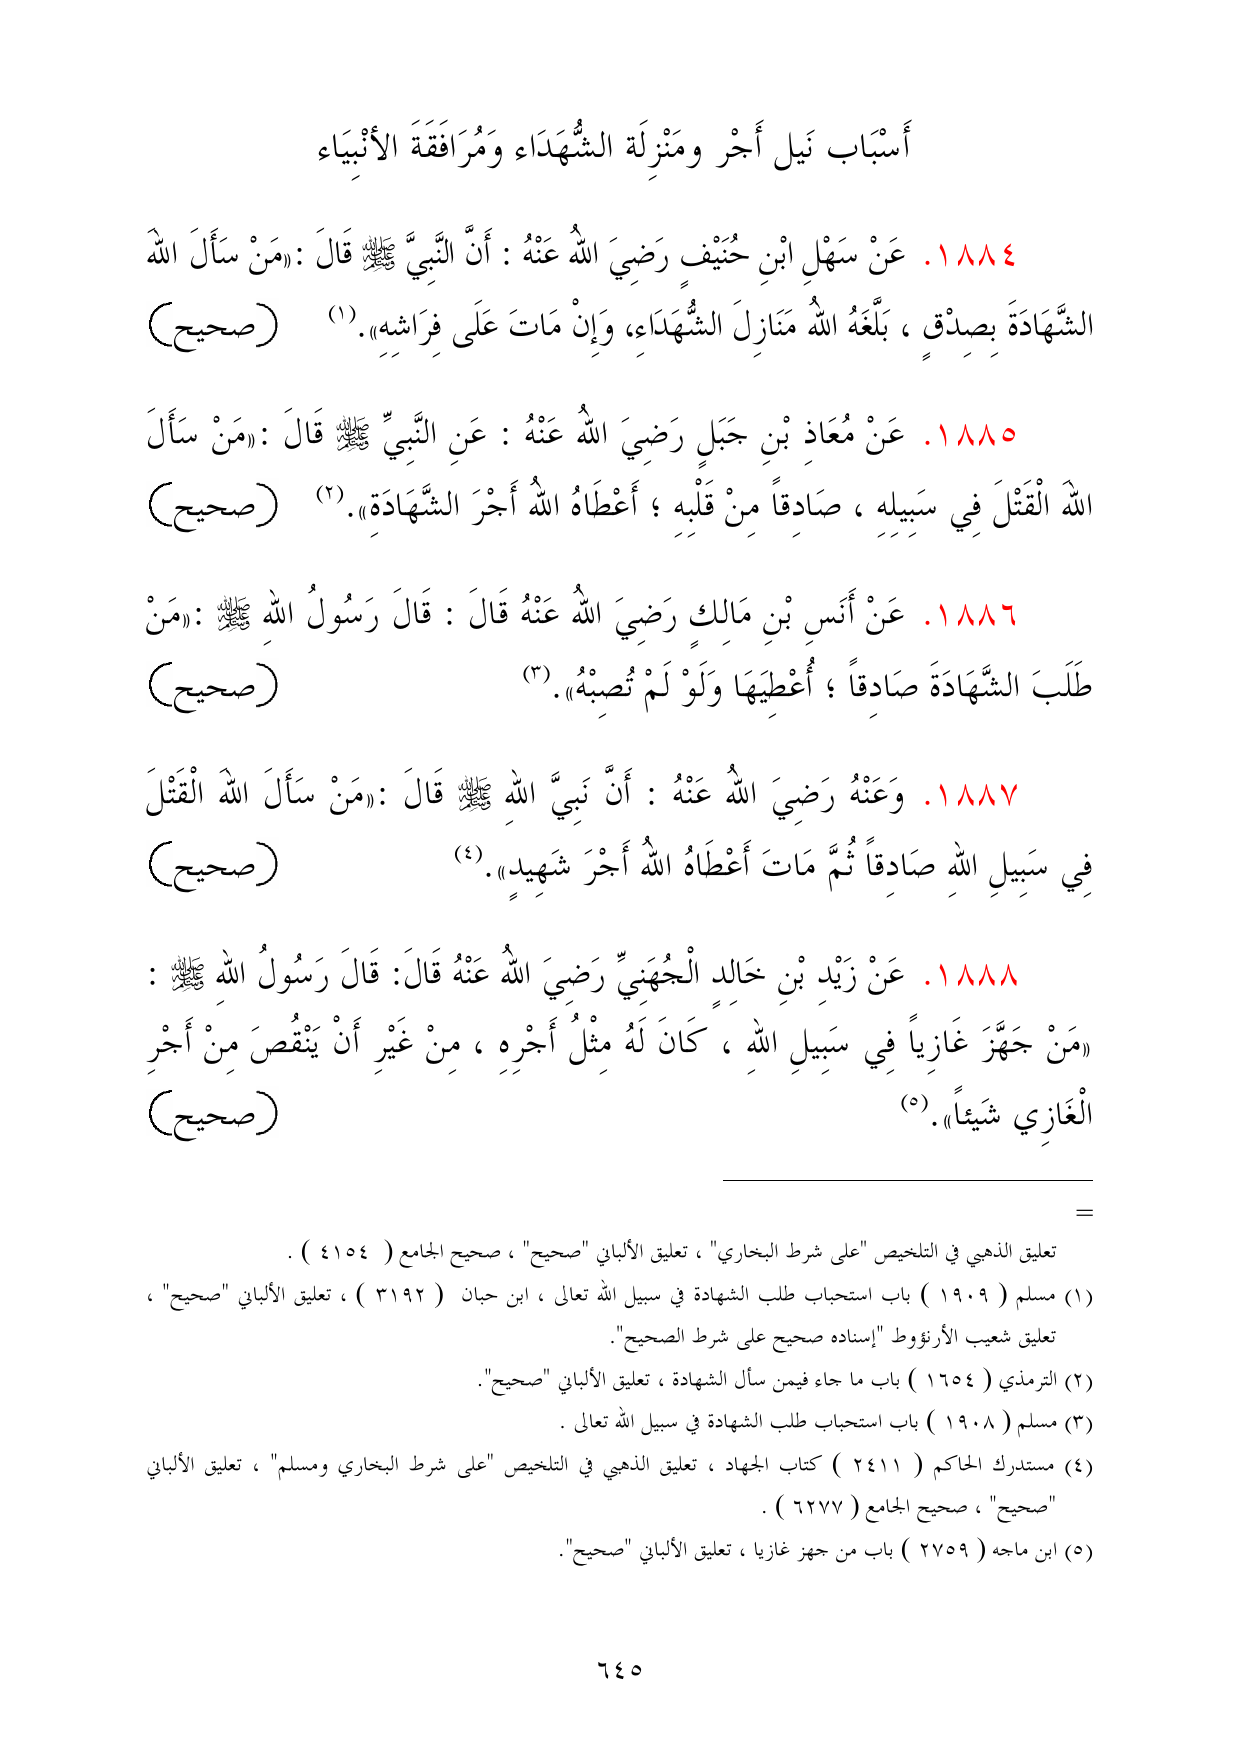 أَسْبَاب نَيل أَجْر ومَنْزِلَة الشُّهَدَاء وَمُرَافَقَةَ الأنْبِيَاء
١٨٨٤. عَنْ سَهْلِ ابْنِ حُنَيْفٍ رَضِيَ اللهُ عَنْهُ : أَنَّ النَّبِيَّ ﷺ قَالَ :«مَنْ سَأَلَ اللهَ
الشَّهَادَةَ بِصِدْقٍ ، بَلَّغَهُ اللهُ مَنَازِلَ الشُّهَدَاءِ، وَإِنْ مَاتَ عَلَى فِرَاشِهِ».(١) (صحيح)
١٨٨٥. عَنْ مُعَاذِ بْنِ جَبَلٍ رَضِيَ اللهُ عَنْهُ : عَنِ النَّبِيِّ ﷺ قَالَ :«مَنْ سَأَلَ
اللهَ الْقَتْلَ فِي سَبِيلِهِ ، صَادِقاً مِنْ قَلْبِهِ ؛ أَعْطَاهُ اللهُ أَجْرَ الشَّهَادَةِ».(٢) (صحيح)
١٨٨٦. عَنْ أَنَسِ بْنِ مَالِكٍ رَضِيَ اللهُ عَنْهُ قَالَ : قَالَ رَسُولُ اللهِ ﷺ :«مَنْ
طَلَبَ الشَّهَادَةَ صَادِقاً ؛ أُعْطِيَهَا وَلَوْ لَمْ تُصِبْهُ».(٣) (صحيح)
١٨٨٧. وَعَنْهُ رَضِيَ اللهُ عَنْهُ : أَنَّ نَبِيَّ اللهِ ﷺ قَالَ :«مَنْ سَأَلَ اللهَ الْقَتْلَ
فِي سَبِيلِ اللهِ صَادِقاً ثُمَّ مَاتَ أَعْطَاهُ اللهُ أَجْرَ شَهِيدٍ».(٤) (صحيح)
١٨٨٨. عَنْ زَيْدِ بْنِ خَالِدٍ الْجُهَنِيِّ رَضِيَ اللهُ عَنْهُ قَالَ: قَالَ رَسُولُ اللهِ ﷺ :
«مَنْ جَهَّزَ غَازِياً فِي سَبِيلِ اللهِ ، كَانَ لَهُ مِثْلُ أَجْرِهِ ، مِنْ غَيْرِ أَنْ يَنْقُصَ مِنْ أَجْرِ
الْغَازِي شَيئاً».(٥) (صحيح)
=
تعليق الذهبي في التلخيص "على شرط البخاري" ، تعليق الألباني "صحيح" ، صحيح الجامع ( ٤١٥٤ ) .
(١) مسلم ( ١٩٠٩ ) باب استحباب طلب الشهادة في سبيل الله تعالى ، ابن حبان ( ٣١٩٢ ) ، تعليق الألباني "صحيح" ،
تعليق شعيب الأرنؤوط "إسناده صحيح على شرط الصحيح".
(٢) الترمذي ( ١٦٥٤ ) باب ما جاء فيمن سأل الشهادة ، تعليق الألباني "صحيح".
(٣) مسلم ( ١٩٠٨ ) باب استحباب طلب الشهادة في سبيل الله تعالى .
(٤) مستدرك الحاكم ( ٢٤١١ ) كتاب الجهاد ، تعليق الذهبي في التلخيص "على شرط البخاري ومسلم" ، تعليق الألباني
"صحيح" ، صحيح الجامع ( ٦٢٧٧ ) .
(٥) ابن ماجه ( ٢٧٥٩ ) باب من جهز غازيا ، تعليق الألباني "صحيح".
٦٤٥